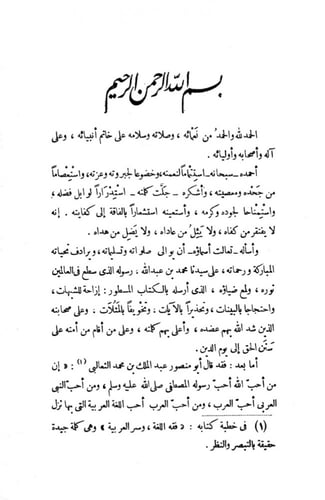 بسم الله الرحمن الرحيم
الحمد لله والحمد من نعمائه ، وصلاته وسلامه على خاتم أنبيائه ، وعلى
آله وأصحابه وأوليائه .
أحمده ـ سبحانه ـ استتماما لنعمته ، وخضوعا لجبروته وعزته ، واستعصاما
من جحده ومعصيته ، وأشكره ـ جلت كلمته ـ استدرارا لوابل فضله ،
واستمناحا لجوده وكرمه ، وأستعينه استشعارا بالفاقة إلى كفايته . إنه
لا يفتقر من كفاه ، ولا يئل من عاداه ، ولا يضل من هداه .
وأسأله ـ تعالت أسماؤه ـ أن يوالى صلواته وتسليماته ، ويرادف تحياته
المباركة ورحماته ، على سيدنا محمد بن عبدالله ، رسوله الذى سطع فى العالمين
نوره ، ولمع ضياؤه ، الذى أرسله بالكتاب المسطور : إزاحة للشبهات ،
واحتجاجا بالبينات ، وتحذيرا بالآيات ، وتخويفا بالمثلات ، وعلى صحابته
الذين شد الله بهم عضده ، وأعلى بهم كلمته ، وعلى من أقام من أمته على
سنن الحق إلى يوم الدين .
أما بعد : فقد قال أبو منصور عبد الملك بن محمد الثعالبي (١) : « إن
من أحب الله أحب رسوله المصطفى صلى الله عليه وسلم ، ومن أحب النبى
العربى أحب العرب ، ومن أحب العرب أحب اللغة العربية التى بها نزل
(١) فى خطبة كتابه : « فقه اللغة ، وسر العربية » وهى كلمة جيدة
حقيقة بالتبصر والنظر .